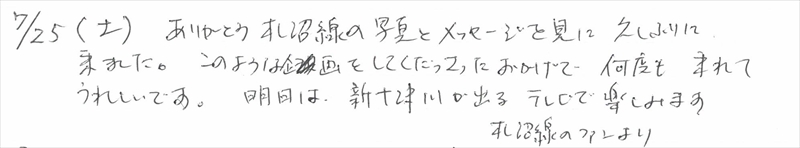 7/25（土） ありがとう 札沼線の写真とメッセージを見に 久しぶりに
来ました。このような企画をしてくださったおかげで 何度も 来れて
うれしいです。 明日は、新十津川が出る テレビで 楽しみます
札沼線のファンより